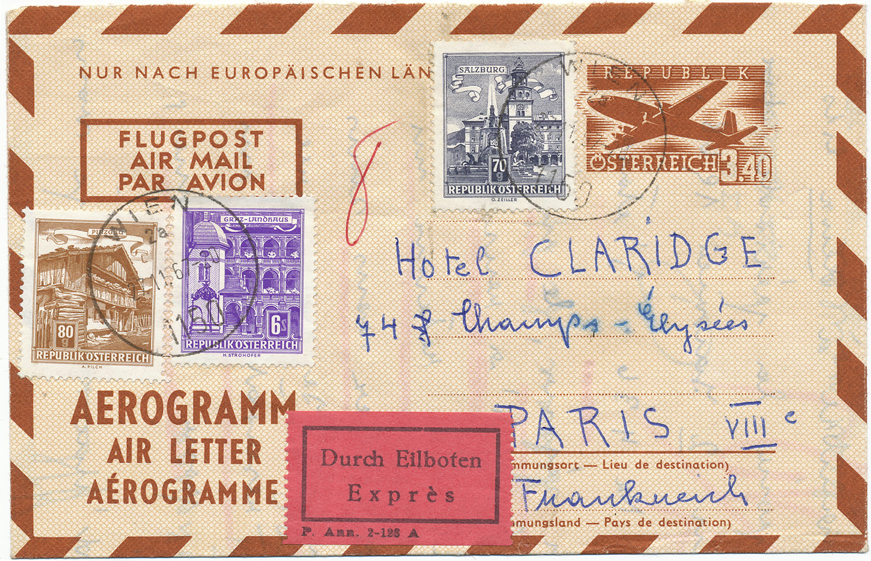 NUR NACH EUROPÄISCHEN LÄN
FLUGPOST
AIR MAIL
PAR AVION
SALZBURG
70 g
REPUBLIK ÖSTERREICH
O. ZEILLER
WIEN
1150
REPUBLIK
ÖSTERREICH 3.40
8
WIEN
2a
1150
80 g
REPUBLIK ÖSTERREICH
A. PILCH
GRAZ-LANDHAUS
6 S
REPUBLIK ÖSTERREICH
H. STROHOFER
Hotel CLARIDGE
74 Champs-Élysées
PARIS VIIIe
mmungsort — Lieu de destination)
Frankreich
mmungsland — Pays de destination)
AEROGRAMM
AIR LETTER
AÉROGRAMME
Durch Eilboten
Exprès
P. Ann. 2-128 A